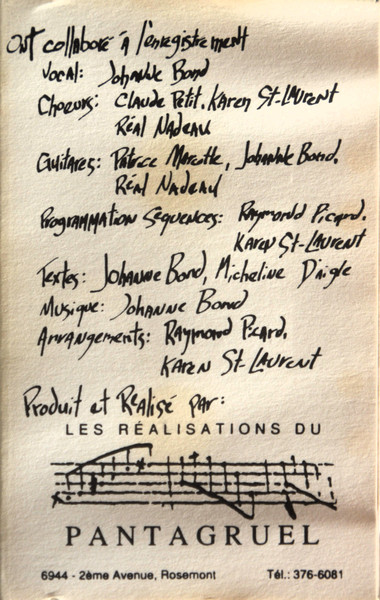 Ont collaboré à l'enregistrement
Vocal: Johanne Bond
Choeurs: Claude Petit, Karen St-Laurent
Réal Nadeau
Guitares: Patrice Marcotte, Johanne Bond,
Réal Nadeau
Programmation Séquences: Raymond Picard,
Karen St-Laurent
Textes: Johanne Bond, Micheline D'aigle
Musique: Johanne Bond
Arrangements: Raymond Picard,
Karen St-Laurent
Produit et Réalisé par:
LES RÉALISATIONS DU
PANTAGRUEL
6944 - 2ème Avenue, Rosemont Tél.: 376-6081